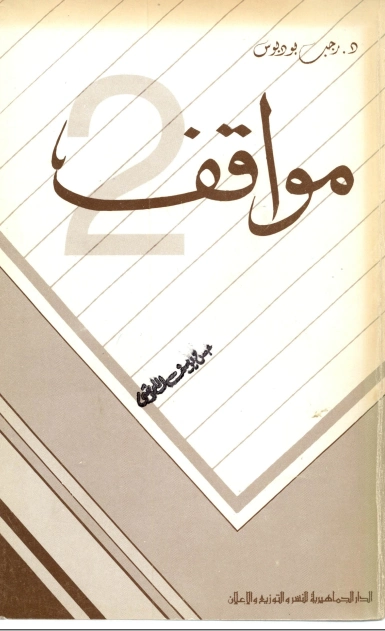 د. رجب بودبوس
2
مواقف
الدار الجماهيرية للنشر والتوزيع والإعلان